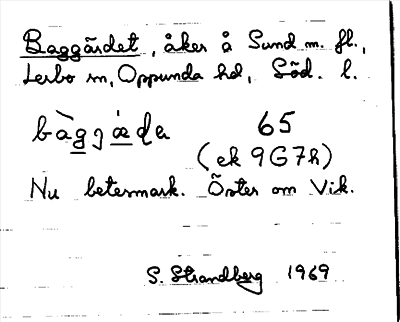 Baggärdet, åker å Sund m. fl.,
Lerbo sn, Oppunda hd, Söd. l.
bàgjæ̀da 65
(ek 9G7h)
Nu betesmark. Öster om Vik.
S. Strandberg 1969